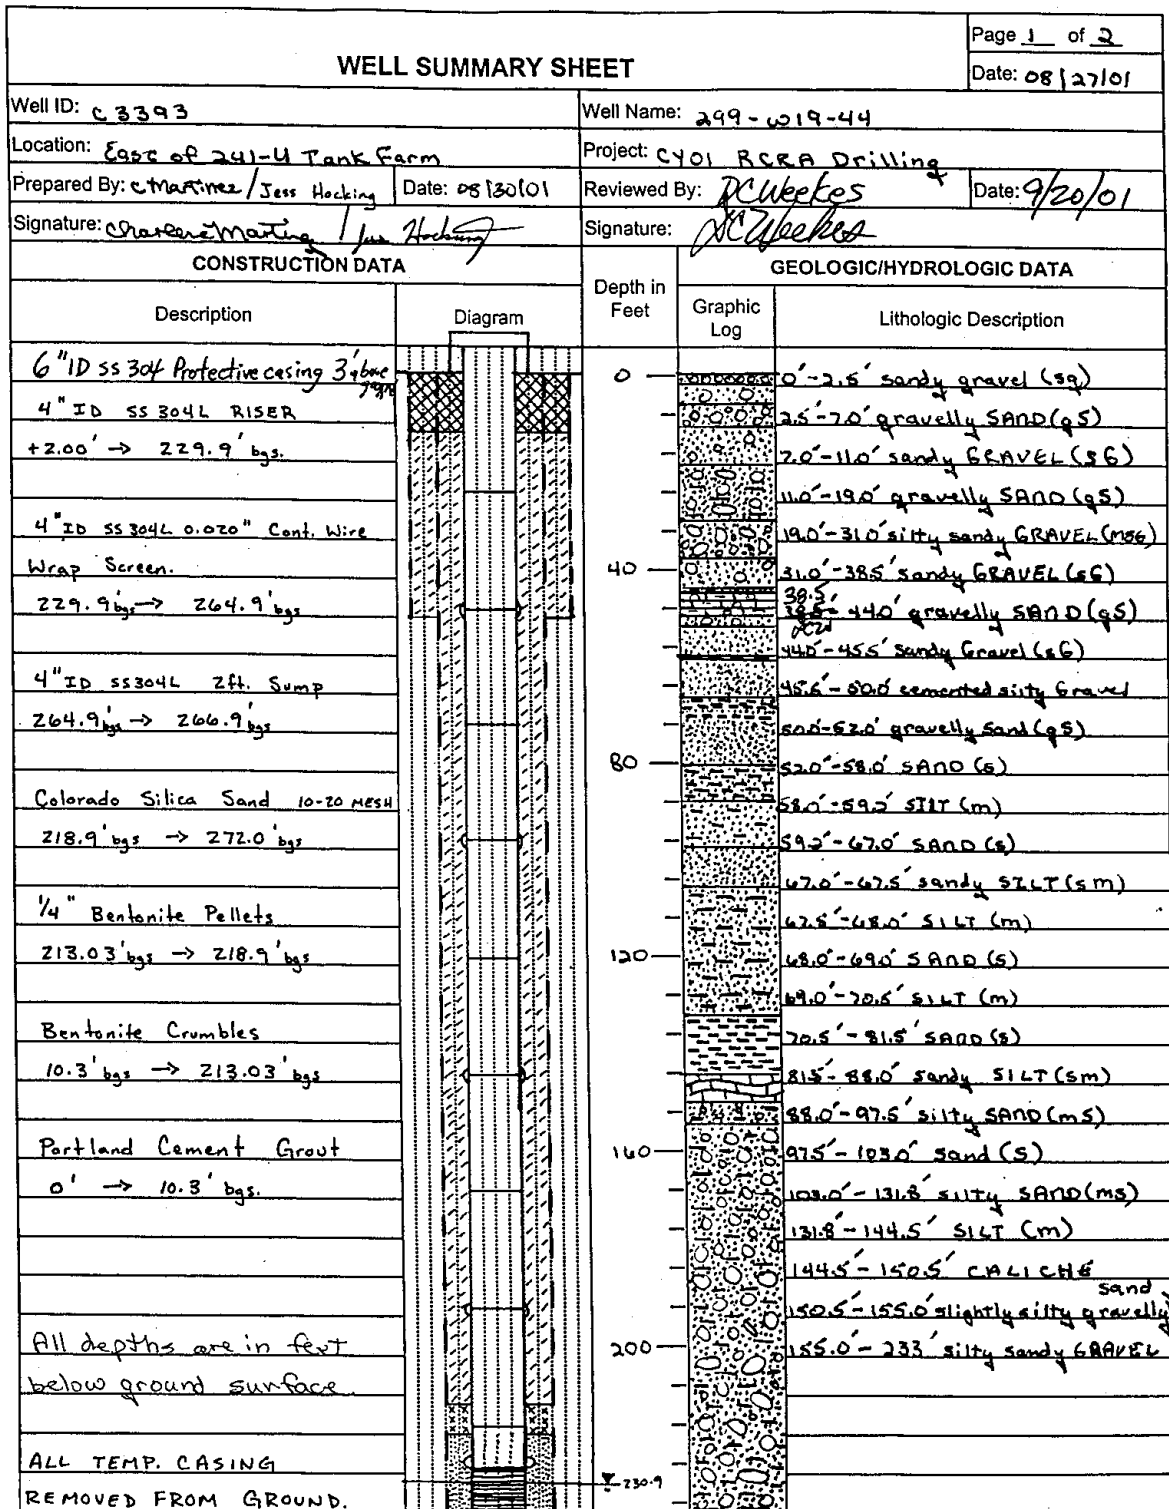 WELL SUMMARY SHEET
Page 1 of 2
Date: 08/27/01
Well ID: C3393
Well Name: 299-W19-44
Location: East of 241-U Tank Farm
Project: CY01 RCRA Drilling
Prepared By: C Martinez / Jess Hocking
Date: 08/30/01
Reviewed By: DC Weekes
Date: 9/20/01
Signature: Charlene Martinez / Jess Hocking
Signature: DC Weekes
CONSTRUCTION DATA
Depth in Feet
GEOLOGIC/HYDROLOGIC DATA
Description
Diagram
Graphic Log
Lithologic Description
6" ID SS 304 Protective casing 3' above
4" ID SS 304L RISER
+2.00' → 229.9' bgs.
4" ID SS 304L 0.020" Cont. Wire
Wrap Screen.
229.9' bgs → 264.9' bgs
4" ID SS304L 2ft. Sump
264.9' bgs → 266.9' bgs
Colorado Silica Sand 10-20 MESH
218.9' bgs → 272.0' bgs
1/4" Bentonite Pellets
213.03' bgs → 218.9' bgs
Bentonite Crumbles
10.3' bgs → 213.03' bgs
Portland Cement Grout
0' → 10.3' bgs.
All depths are in feet
below ground surface.
ALL TEMP. CASING
REMOVED FROM GROUND.
0
40
80
120
160
200
230.9
0'-2.5' sandy gravel (sg)
2.5'-7.0' gravelly SAND (gS)
7.0'-11.0' sandy GRAVEL (sG)
11.0'-19.0' gravelly SAND (gS)
19.0'-31.0' silty sandy GRAVEL (msG)
31.0'-38.5' sandy GRAVEL (sG)
38.5'
-44.0' gravelly SAND (gS)
44.0'-45.5' Sandy Gravel (sG)
45.5'-50.0' cemented silty Gravel
50.0'-52.0' gravelly Sand (gS)
52.0'-58.0' SAND (s)
58.0'-59.2' SILT (m)
59.2'-67.0' SAND (s)
67.0'-67.5' sandy SILT (sm)
67.5'-68.0' SILT (m)
68.0'-69.0' SAND (s)
69.0'-70.5' SILT (m)
70.5'-81.5' SAND (s)
81.5'-88.0' sandy SILT (sm)
88.0'-97.5' silty SAND (mS)
97.5'-103.0' sand (S)
103.0'-131.8' silty SAND (ms)
131.8'-144.5' SILT (m)
144.5'-150.5' CALICHE
150.5'-155.0' slightly silty gravelly sand
155.0'-233' silty sandy GRAVEL